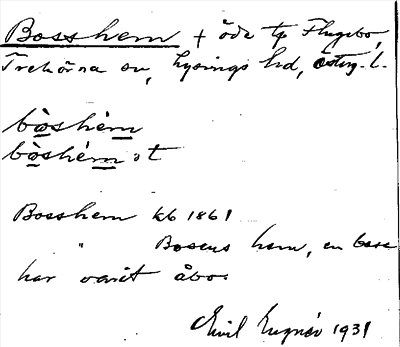 Bosshem † öde tp Flugebo,
Trehörna sn, Lysings hd, Östg. l.
bòshém
bòshém ; t
Bosshem kb 1861
" Bosens hem, en bosse
har varit åbo.
Emil 1931